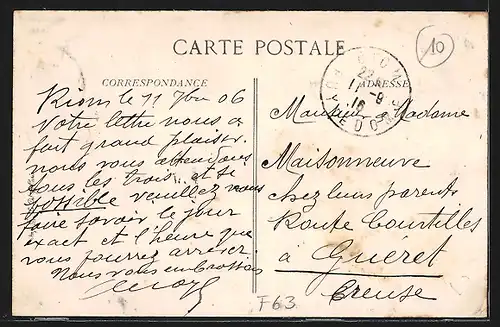 CARTE POSTALE
10
CORRESPONDANCE
ADRESSE
Riom le 11 7bre 06
Votre lettre nous a
fait grand plaisir.
nous vous attendons
tous les trois et si
possible veuillez nous
faire savoir le jour
exact et l'heure que
vous pourrez arriver.
Nous vous embrassons
RIOM
PUY DE DOME
Monsieur Madame
Maisonneuve
chez leurs parents
Route Courtilles
à Guéret
Creuse
F63